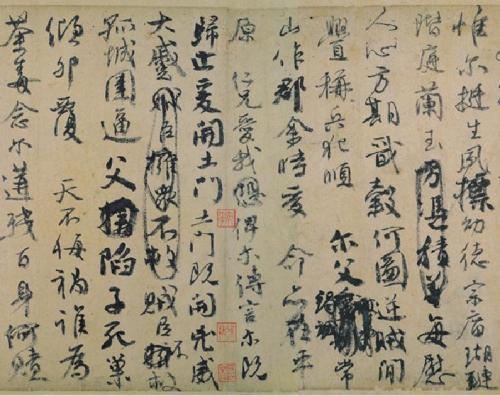 惟尔挺生夙標幼德宗廟瑚璉
階庭蘭玉方憑積善每慰
人心方期戩穀何圖逆賊間
釁稱兵犯順尔父竭誠常
山作郡余時受命亦在平
原仁兄愛我恐俾尔傳言尔既
歸止爰開土門土門既開凶威
大蹙賊臣擁衆不救賊臣不救
孤城圍逼父陷子死巢
傾卵覆天不悔禍誰為
荼毒念尔遘殘百身何贖